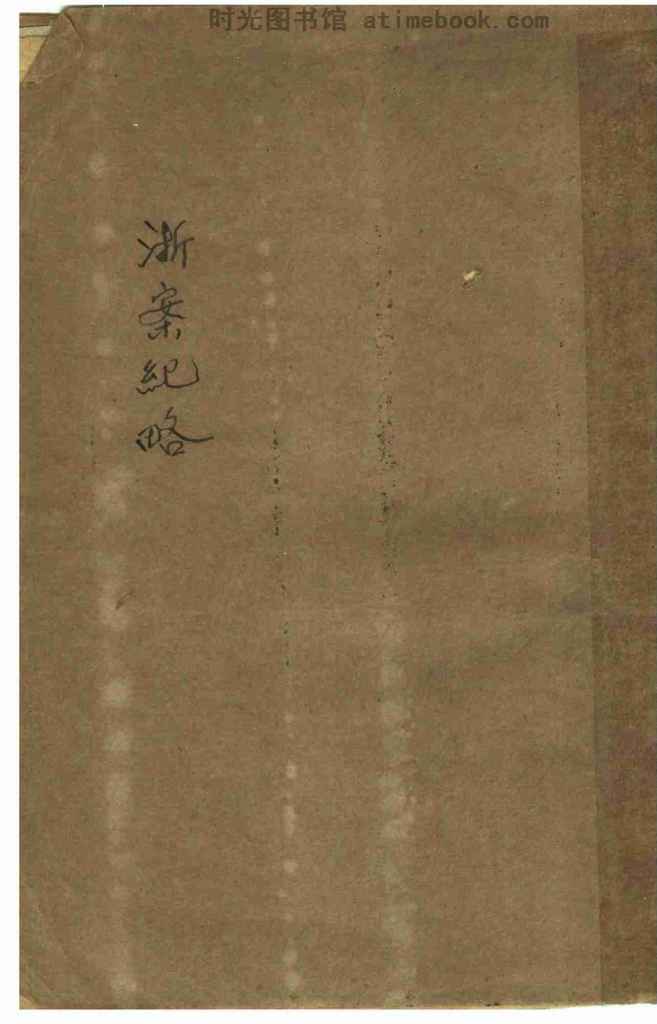 时光图书馆 atimebook.com
浙案紀略